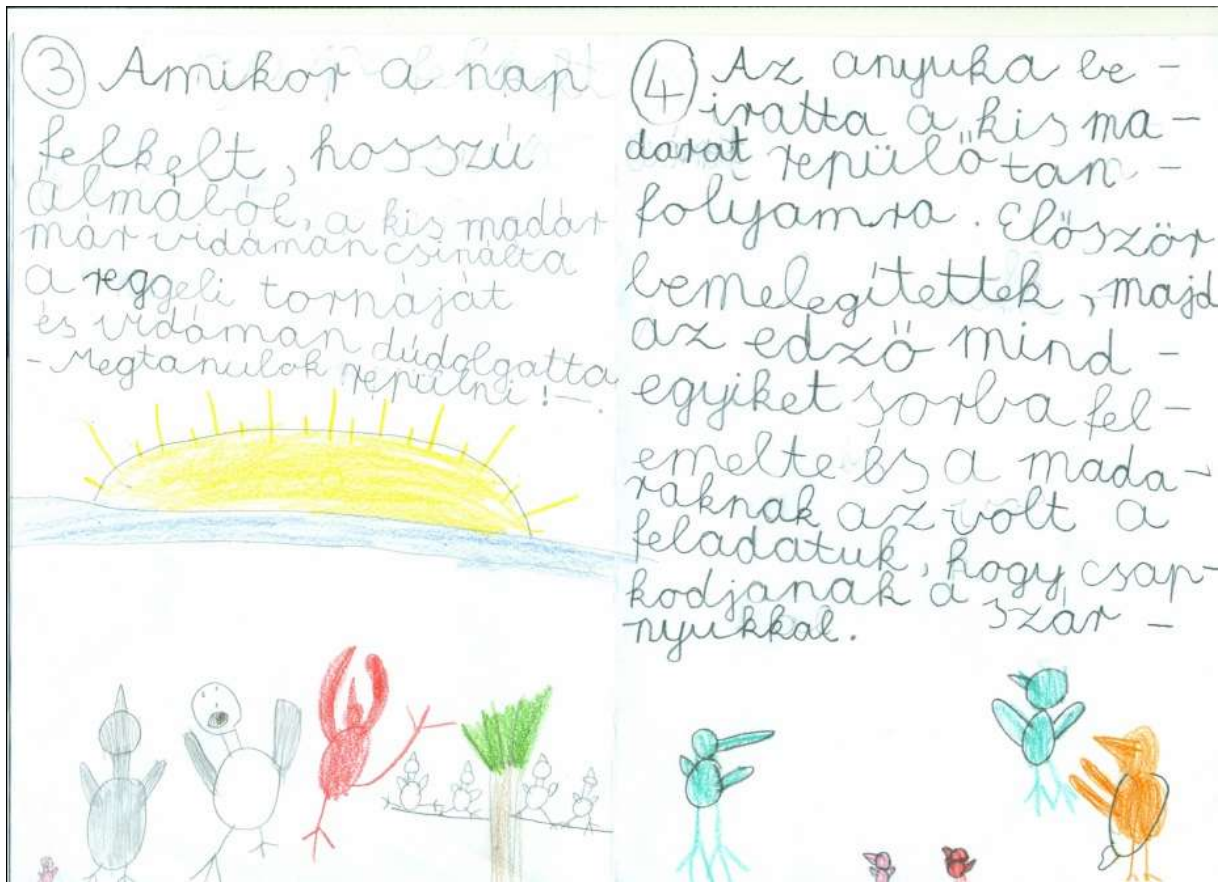 ③ Amikor a nap
felkelt, hosszú
álmából, a kis madár
már vidáman csinálta
a reggeli tornáját
és vidáman dúdolgatta
- Megtanulok repülni! -.
④ Az anyuka be -
íratta a kis ma -
darat repülő tan -
folyamra. Először
bemelegítettek, majd
az edző mind -
egyiket sorba fel -
emelte és a mada -
raknak az volt a
feladatuk, hogy csap -
kodjanak a szár -
nyukkal.